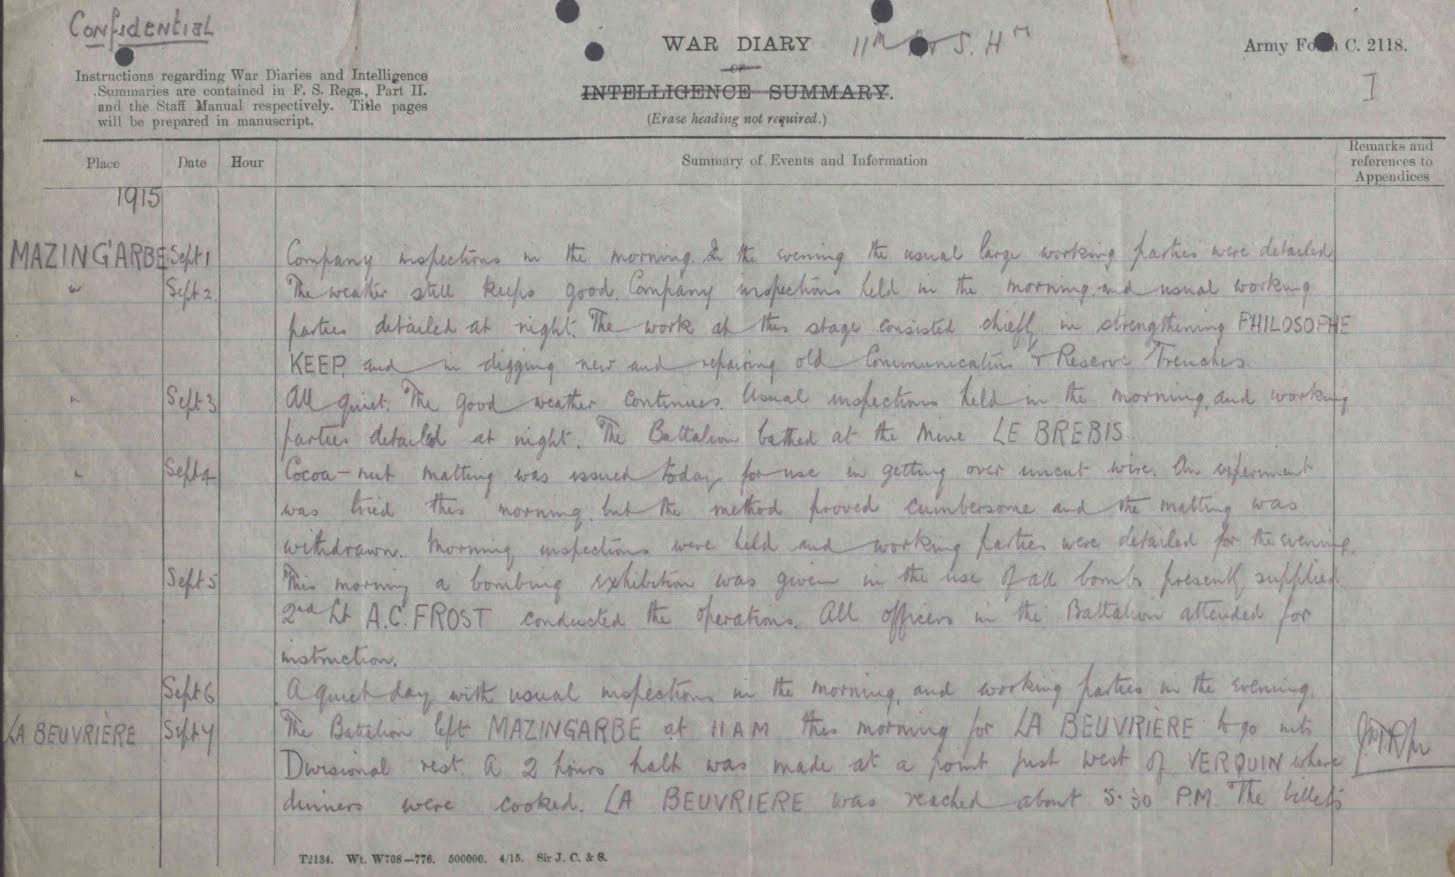 Confidential
WAR DIARY 11th S. Hrs
or
INTELLIGENCE SUMMARY.
(Erase heading not required.)
Army Form C. 2118.
I
Instructions regarding War Diaries and Intelligence
Summaries are contained in F. S. Regs., Part II.
and the Staff Manual respectively. Title pages
will be prepared in manuscript.
Place Date Hour Summary of Events and Information Remarks and
references to
Appendices
1915
MAZINGARBE Sept 1 Company inspections in the morning. In the evening the usual large working parties were detailed
" Sept 2 The weather still keeps good. Company inspections held in the morning and usual working
parties detailed at night. The work at this stage consisted chiefly in strengthening PHILOSOPHE
KEEP and in digging new and repairing old Communication & Reserve Trenches.
" Sept 3 All quiet. The good weather continues. Usual inspections held in the morning, and working
parties detailed at night. The Battalion bathed at the Mine LE BREBIS.
" Sept 4 Cocoa-nut matting was issued today for use in getting over uncut wire. An experiment
was tried this morning but the method proved cumbersome and the matting was
withdrawn. Morning inspections were held and working parties were detailed for the evening.
Sept 5 This morning a bombing exhibition was given in the use of all bombs presently supplied
2nd Lt A.C. FROST conducted the operations. All officers in the Battalion attended for
instruction.
Sept 6 A quiet day with usual inspections in the morning, and working parties in the evening.
LA BEUVRIÈRE Sept 7 The Battalion left MAZINGARBE at 11 AM this morning for LA BEUVRIÈRE to go into
Divisional rest. A 2 hours halt was made at a point just west of VERQUIN where
dinners were cooked. LA BEUVRIERE was reached about 5.30 P.M. The billets
T2134. Wt. W708—776. 500000. 4/15. Sir J. C. & S.